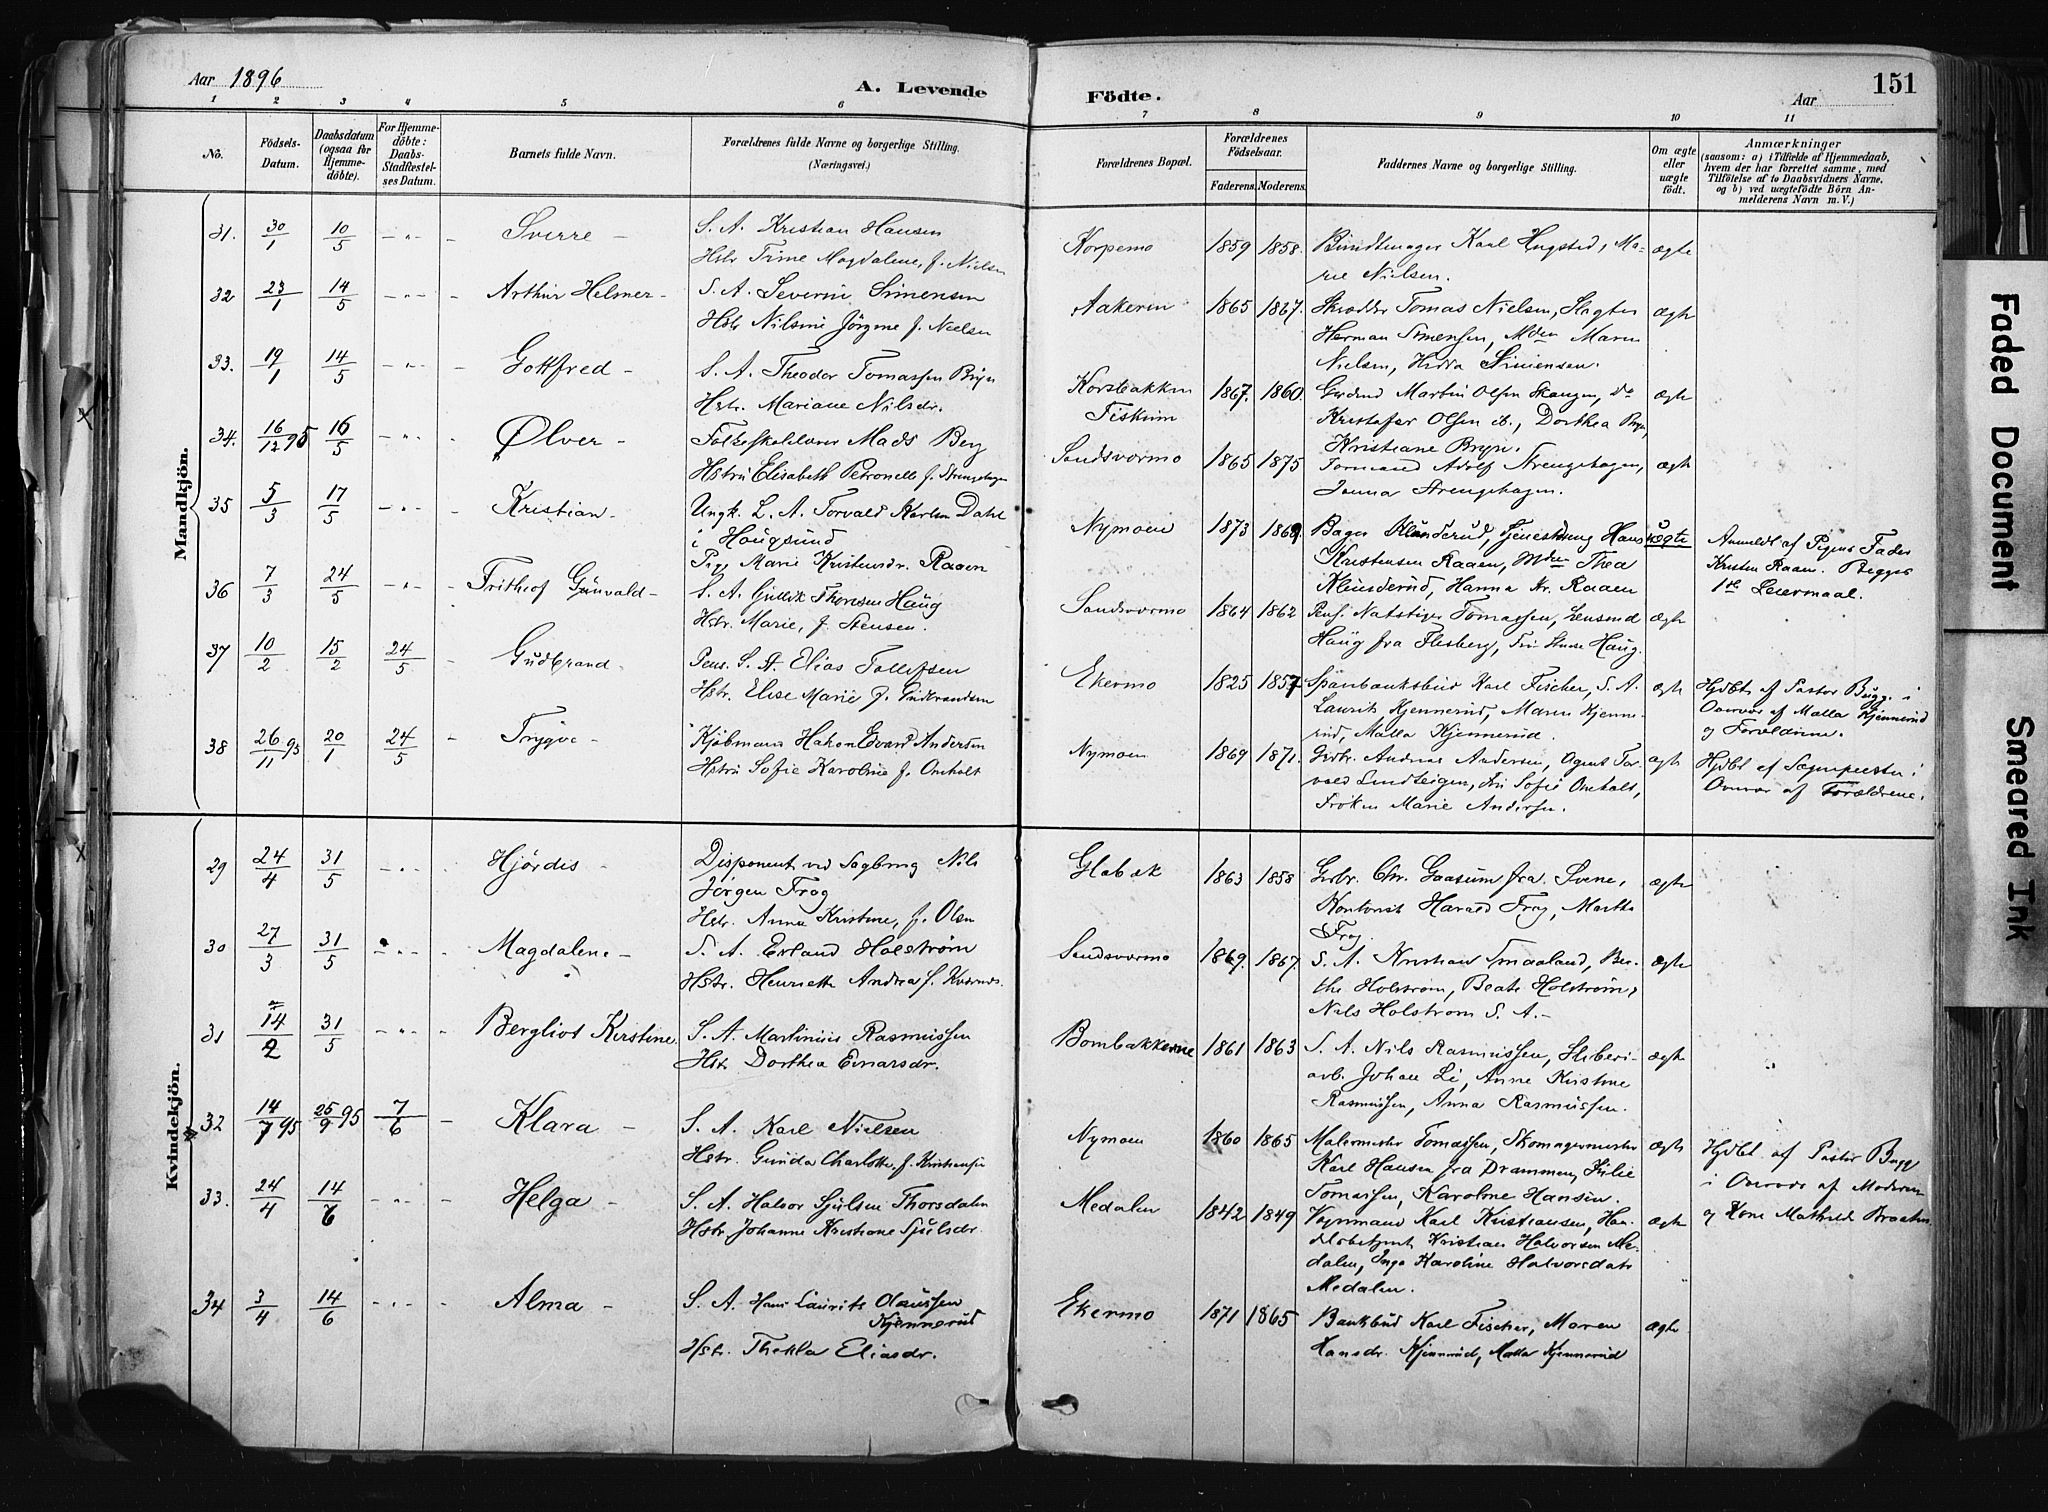 Aar 1896
A. Levende
Födte.
Aar
151
1 2 3 4 5 6 7 8 9 10 11
No.
Födsels-
Datum.
Daabsdatum
(ogsaa for
Hjemme-
döbte).
For Hjemme-
döbte:
Daabs-
Stadfæstel-
ses Datum.
Barnets fulde Navn.
Forældrenes fulde Navne og borgerlige Stilling.
(Næringsvei.)
Forældrenes Bopæl.
Forældrenes
Födselsaar.
Faderens. Moderens.
Faddernes Navne og borgerlige Stilling.
Om ægte
eller
uægte
födt.
Anmærkninger
(saasom: a) i Tilfælde af Hjemmedaab,
hvem der har forrettet samme, med
Tilföielse af to Daabsvidners Navne,
og b) ved uægtefödte Börn An-
melderens Navn m.V.)
Mandkjön.
31. 30/1 10/5 Sverre
S. A. Kristian Hansen
Hstr Trine Magdalene, f. Nielsen
Korpemo 1859 1858. Bundtmager Karl Hugsted, Ma-
rie Nielsen. ægte
32 23/1 14/5 Arthur Helmer
S. A. Severin Simensen
Hstr Nilsine Jörgine f. Nielsen
Aakeren 1865 1867. Skrædder Tomas Nielsen, Slagter
Herman Simensen, Mdm Maren
Nielsen, Hedda Simensen. ægte
33. 19/1 14/5 Gottfred
S. A. Theodor Tomassen Bryn
Hstr. Mariane Nilsdr.
Korsbakken
Fiskum 1867. 1860. Grdmd Martin Olsen Skaugen, do
Kristofer Olsen ib., Dorthea Bryn,
Kristiane Bryn. ægte
34. 16/12 95 16/5 Ølver
Folkeskolelærer Mads Berg
Hstru Elisabeth Petronelle f. Strengehagen
Sandsværmo 1865 1875 Formand Adolf Strengehagen,
Janna Strengehagen. ægte
35 5/3 17/5 Kristian
Ungk. L. A. Torvald Karlsen Dahl
i Hougsund
Pige Marie Kristensdr. Raaen
Nymoen 1873 1869 Bager Klunderud, Tjenestdreng Hans
Kristensen Raaen, Mdm Thea
Klunderud, Hanna Kr. Raaen uægte
Anmeldt af Pigens Fader
Kristen Raaen. Begges
1ste Leiermaal.
36 7/3 24/5 Frithjof Gunvald
S. A. Gullik Thoresen Haug
Hstr. Marie, f. Stensen.
Sandsværmo 1864 1862 Pens. Natstiger Tomassen, Lensmd
Haug fra Flesberg, Fru Haug. ægte
37 10/2 15/2 24/5 Gudbrand
Pens. S. A. Elias Tollefsen
Hstr. Elise Marie f. Gudbrandsen
Ekermo 1825 1857 Sparebanksbud Karl Fischer, S. A.
Laurits Kjennerud, Maren Kjenne-
rud, Malla Kjennerud. ægte
Hjdbt af Pastor Bugge i
Overvær af Malla Kjennerud
og Forældrene.
38 26/11 95 20/1 24/5 Trygve
Kjöbmand Hakon Edvard Andersen
Hstru Sofie Karoline f. Omholt
Nymoen 1869 1871. Grdbr. Andreas Andersen, Agent Tor-
vald Lundteigen, Fru Sofie Omholt,
Fröken Marie Andersen. ægte
Hjdbt af Sognepresten i
Overvær af Forældrene.
Kvindekjön.
29 24/4 31/5 Hjördis
Disponent ved Sagbrug Nils
Jörgen Frog
Hstr. Anna Kristine, f. Olsen
Glabæk 1863 1858 Grdbr. Chr. Gaasum fra Svene,
Kontorist Harald Frog, Martha
Frog. ægte
30 27/3 31/5 Magdalene
S. A. Erland Holström
Hstr. Henriette Andrea f. Kværnes.
Sandsværmo 1869. 1867. S. A. Kristian Smaaland, Ber-
the Holström, Beate Holström,
Nils Holström S. A. ægte
31 14/2 31/5 Bergliot Kirstine
S. A. Martinius Rasmussen
Hstr Dorthea Einarsdr.
Bombakkerne 1861 1863 S. A. Nils Rasmussen, Sliberi-
arb. Johan Li, Anne Kristine
Rasmussen, Anna Rasmussen. ægte
32 14/7 95 25/9 95 7/6 Klara
S. A. Karl Nielsen
Hstr. Gunda Charlotte, f. Kristiansen
Nymoen 1860 1865 Malermester Tomassen, Skomagermester
Karl Hansen fra Drammen, Julie
Tomassen, Karoline Hansen. ægte
Hjdbt af Pastor Bugge
i Overvær af Moderen
og Kone Mathilde Braaten.
33. 24/4 14/6 Helga
S. A. Halvor Sjulsen Thorsdalen
Hstr. Johanne Kristiane Sjulsdr.
Medalen 1842 1849 Vognmand Karl Kristiansen, Han-
delsbetjent Kristian Halvorsen Me-
dalen, Inga Karoline Halvorsdatr
Medalen. ægte
34 3/4 14/6 Alma
S. A. Hans Laurits Olaussen
Kjennerud
Hstr. Thekla Eliasdr.
Ekermo 1871 1865 Bankbud Karl Fischer, Maren
Hansdr. Kjennerud, Malla Kjennerud ægte
Faded Document
Smeared Ink